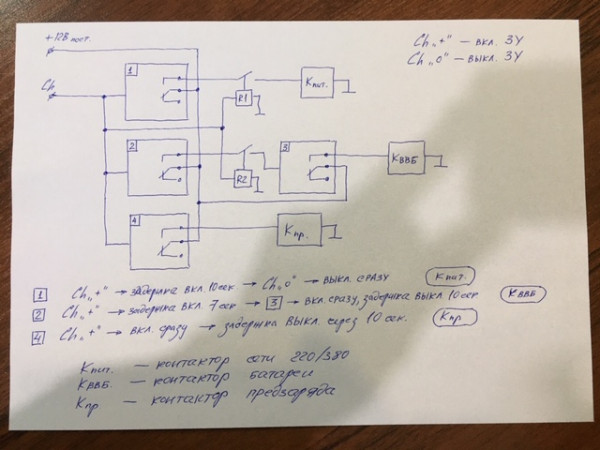 +12В пост.
Ch „+" — вкл. ЗУ
Ch „0" — выкл. ЗУ
Ch
1
R1
Кпит.
2
R2
3
КВВБ
4
Кпр.
1 Ch „+" → задержка вкл. 10сек → Ch „0" → выкл. сразу Кпит.
2 Ch „+" → задержка вкл. 7 сек → 3 → вкл сразу, задержка выкл 10сек КВВБ
4 Ch „+" → вкл. сразу → задержка выкл через 10 сек. Кпр
Кпит. — контактор сети 220/380
КВВБ. — контактор батареи
Кпр — контактор предзаряда